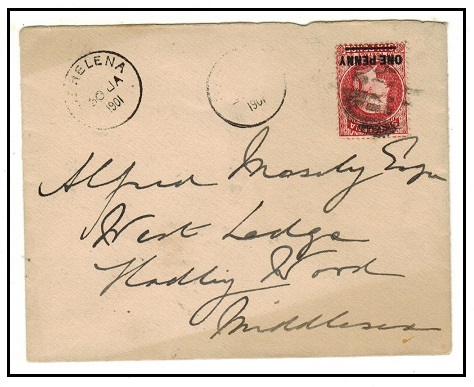 HELENA
30 JA
1901
1901
ONE PENNY
Alfred Mosely Esqr
West Lodge
Hadley Wood
Middlesex